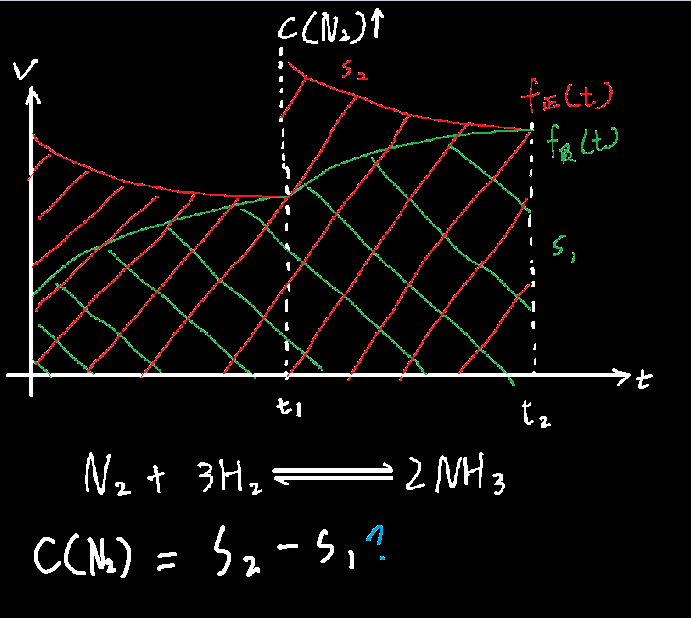 C(N₂)↑
V
S₂
f正(t)
f反(t)
S₁
t₁
t₂
t
N₂ + 3H₂ ⇌ 2NH₃
C(N₂) = S₂ - S₁?